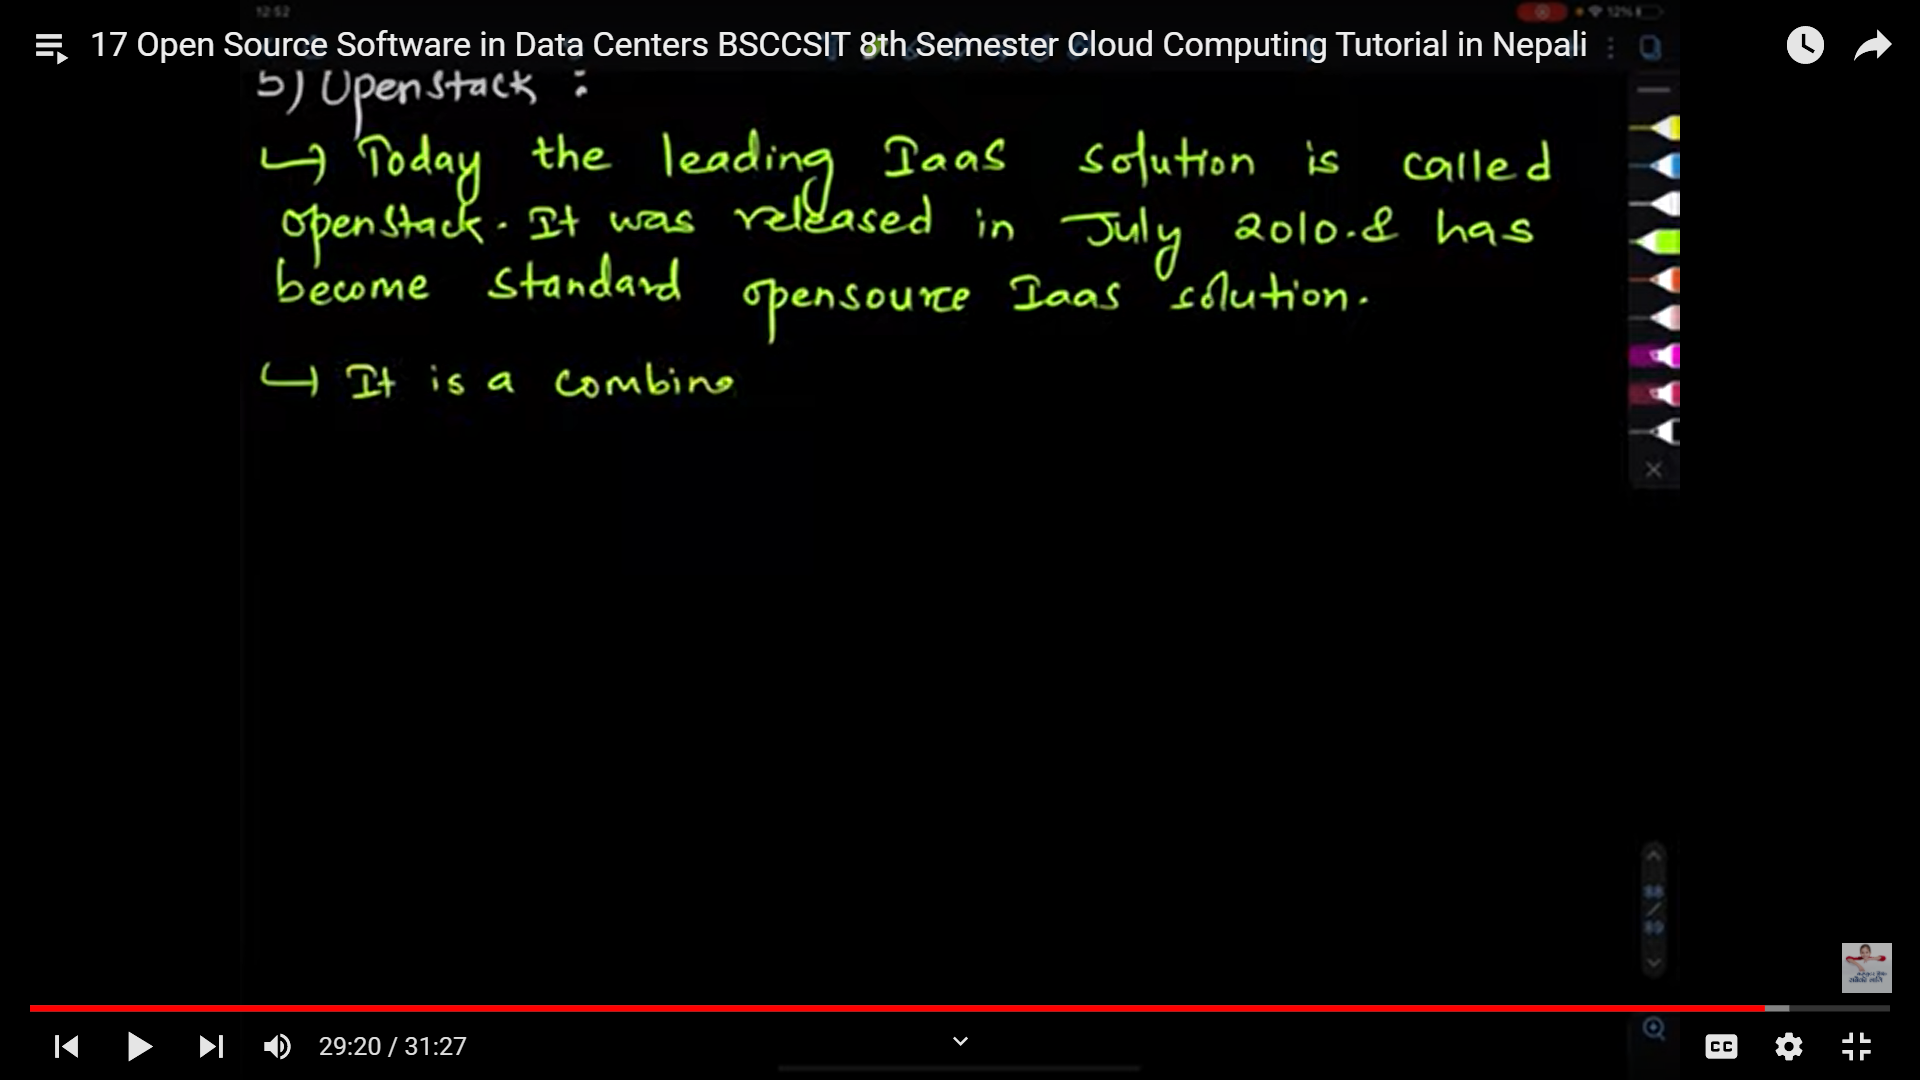 12:52
12%
17 Open Source Software in Data Centers BSCCSIT 8th Semester Cloud Computing Tutorial in Nepali
5) Openstack :
↳ Today the leading IaaS solution is called
openstack. It was released in July 2010. & has
become standard opensource Iaas solution.
↳ It is a combine
88
/
89
29:20 / 31:27
CC